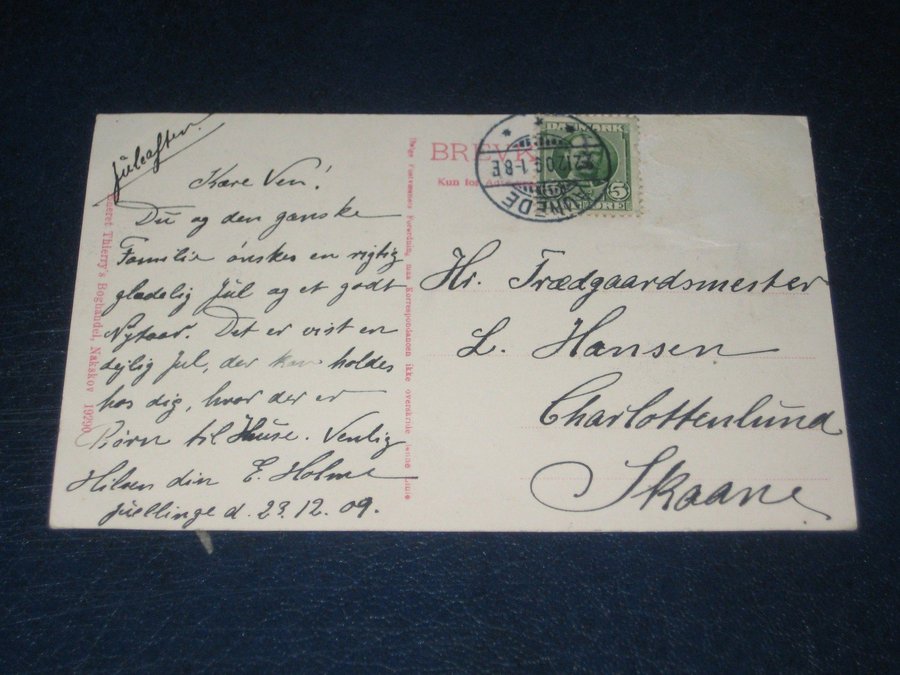 Juleaften.
Kære Ven!
Du og den ganske
Familie ønskes en rigtig
glædelig Jul og et godt
Nytaar. Det er vist en
dejlig Jul, der kan holdes
hos dig, hvor der er
Børn til Huse. Venlig
Hilsen din E. Holme
Juellinge d. 23.12.09.
eneret Thierry's Boghandel, Nakskov 19290
Ifølge Postvæsenets Forordning maa Korrespondancen ikke overskride denne Linie
BREVK
Kun for
DANMARK
5
ØRE
Hr. Trædgaardsmester
L. Hansen
Charlottenlund
Skaane